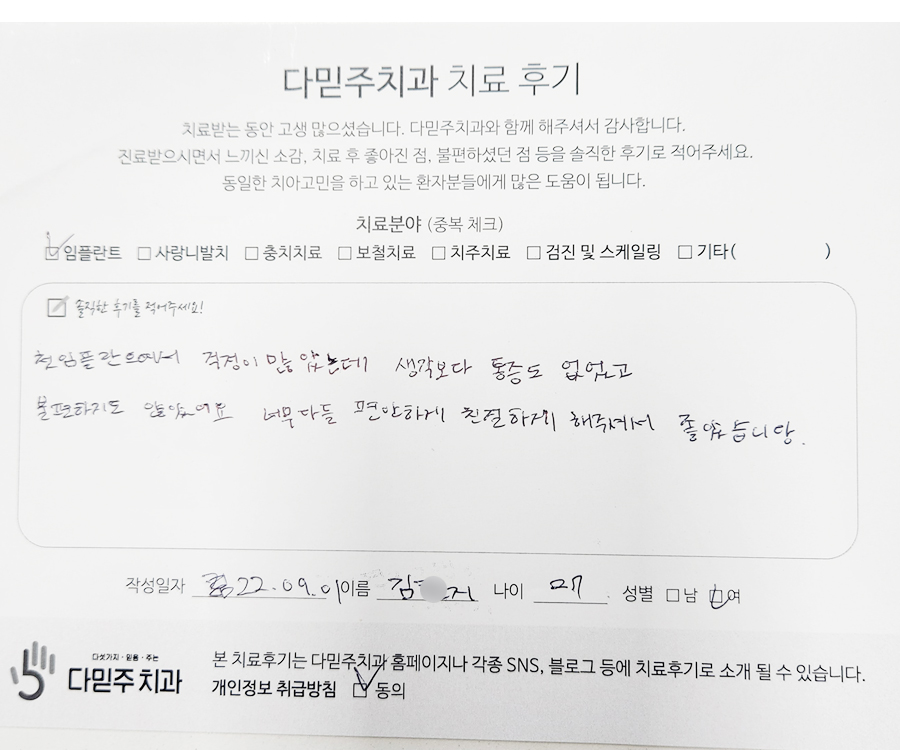 다믿주치과 치료 후기
치료받는 동안 고생 많으셨습니다. 다믿주치과와 함께 해주셔서 감사합니다.
진료받으시면서 느끼신 소감, 치료 후 좋아진 점, 불편하셨던 점 등을 솔직한 후기로 적어주세요.
동일한 치아고민을 하고 있는 환자분들에게 많은 도움이 됩니다.
치료분야 (중복 체크)
임플란트 사랑니발치 충치치료 보철치료 치주치료 검진 및 스케일링 기타( )
솔직한 후기를 적어주세요!
첫임플란트여서 걱정이 많았는데 생각보다 통증도 없었고
불편하지도 않았어요 너무다들 편안하게 친절하게 해주셔서 좋았습니당.
작성일자 22.09.01 이름 김 지 나이 27 성별 남 여
다섯가지·믿음·주는
다믿주치과
본 치료후기는 다믿주치과 홈페이지나 각종 SNS, 블로그 등에 치료후기로 소개 될 수 있습니다.
개인정보 취급방침 동의